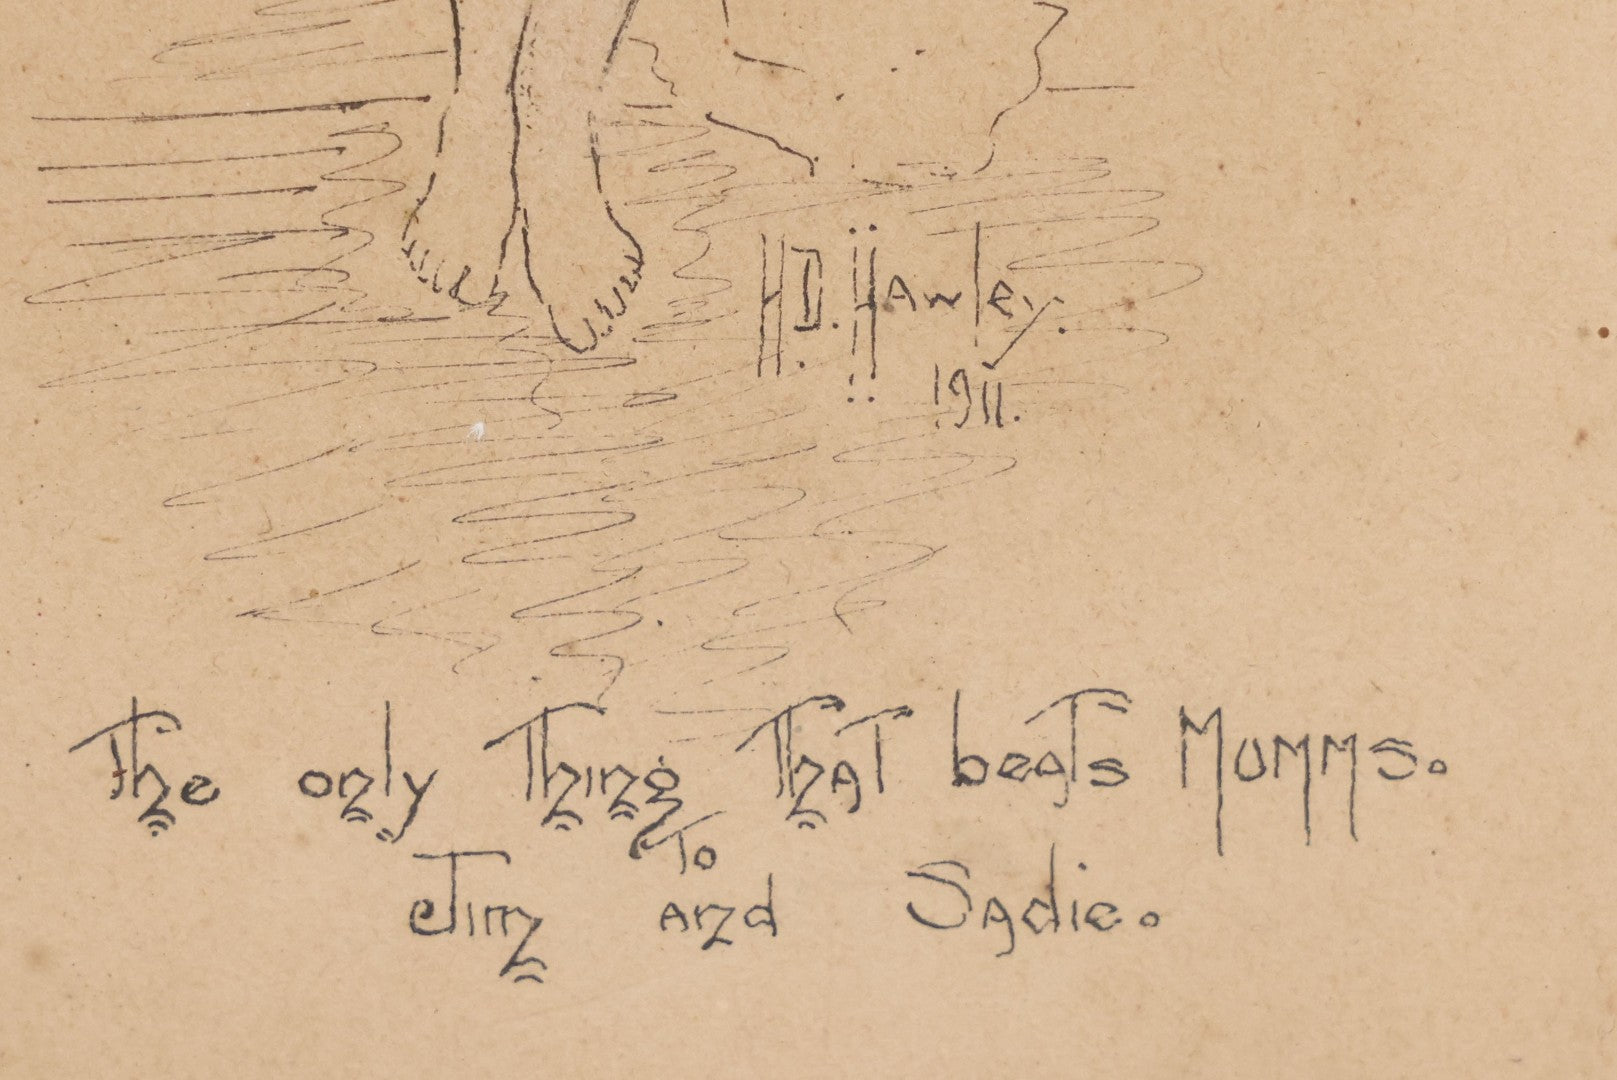 H.D. Hawley.
1911.
The only Thing That beats Mumms.
To
Jim and Sadie.